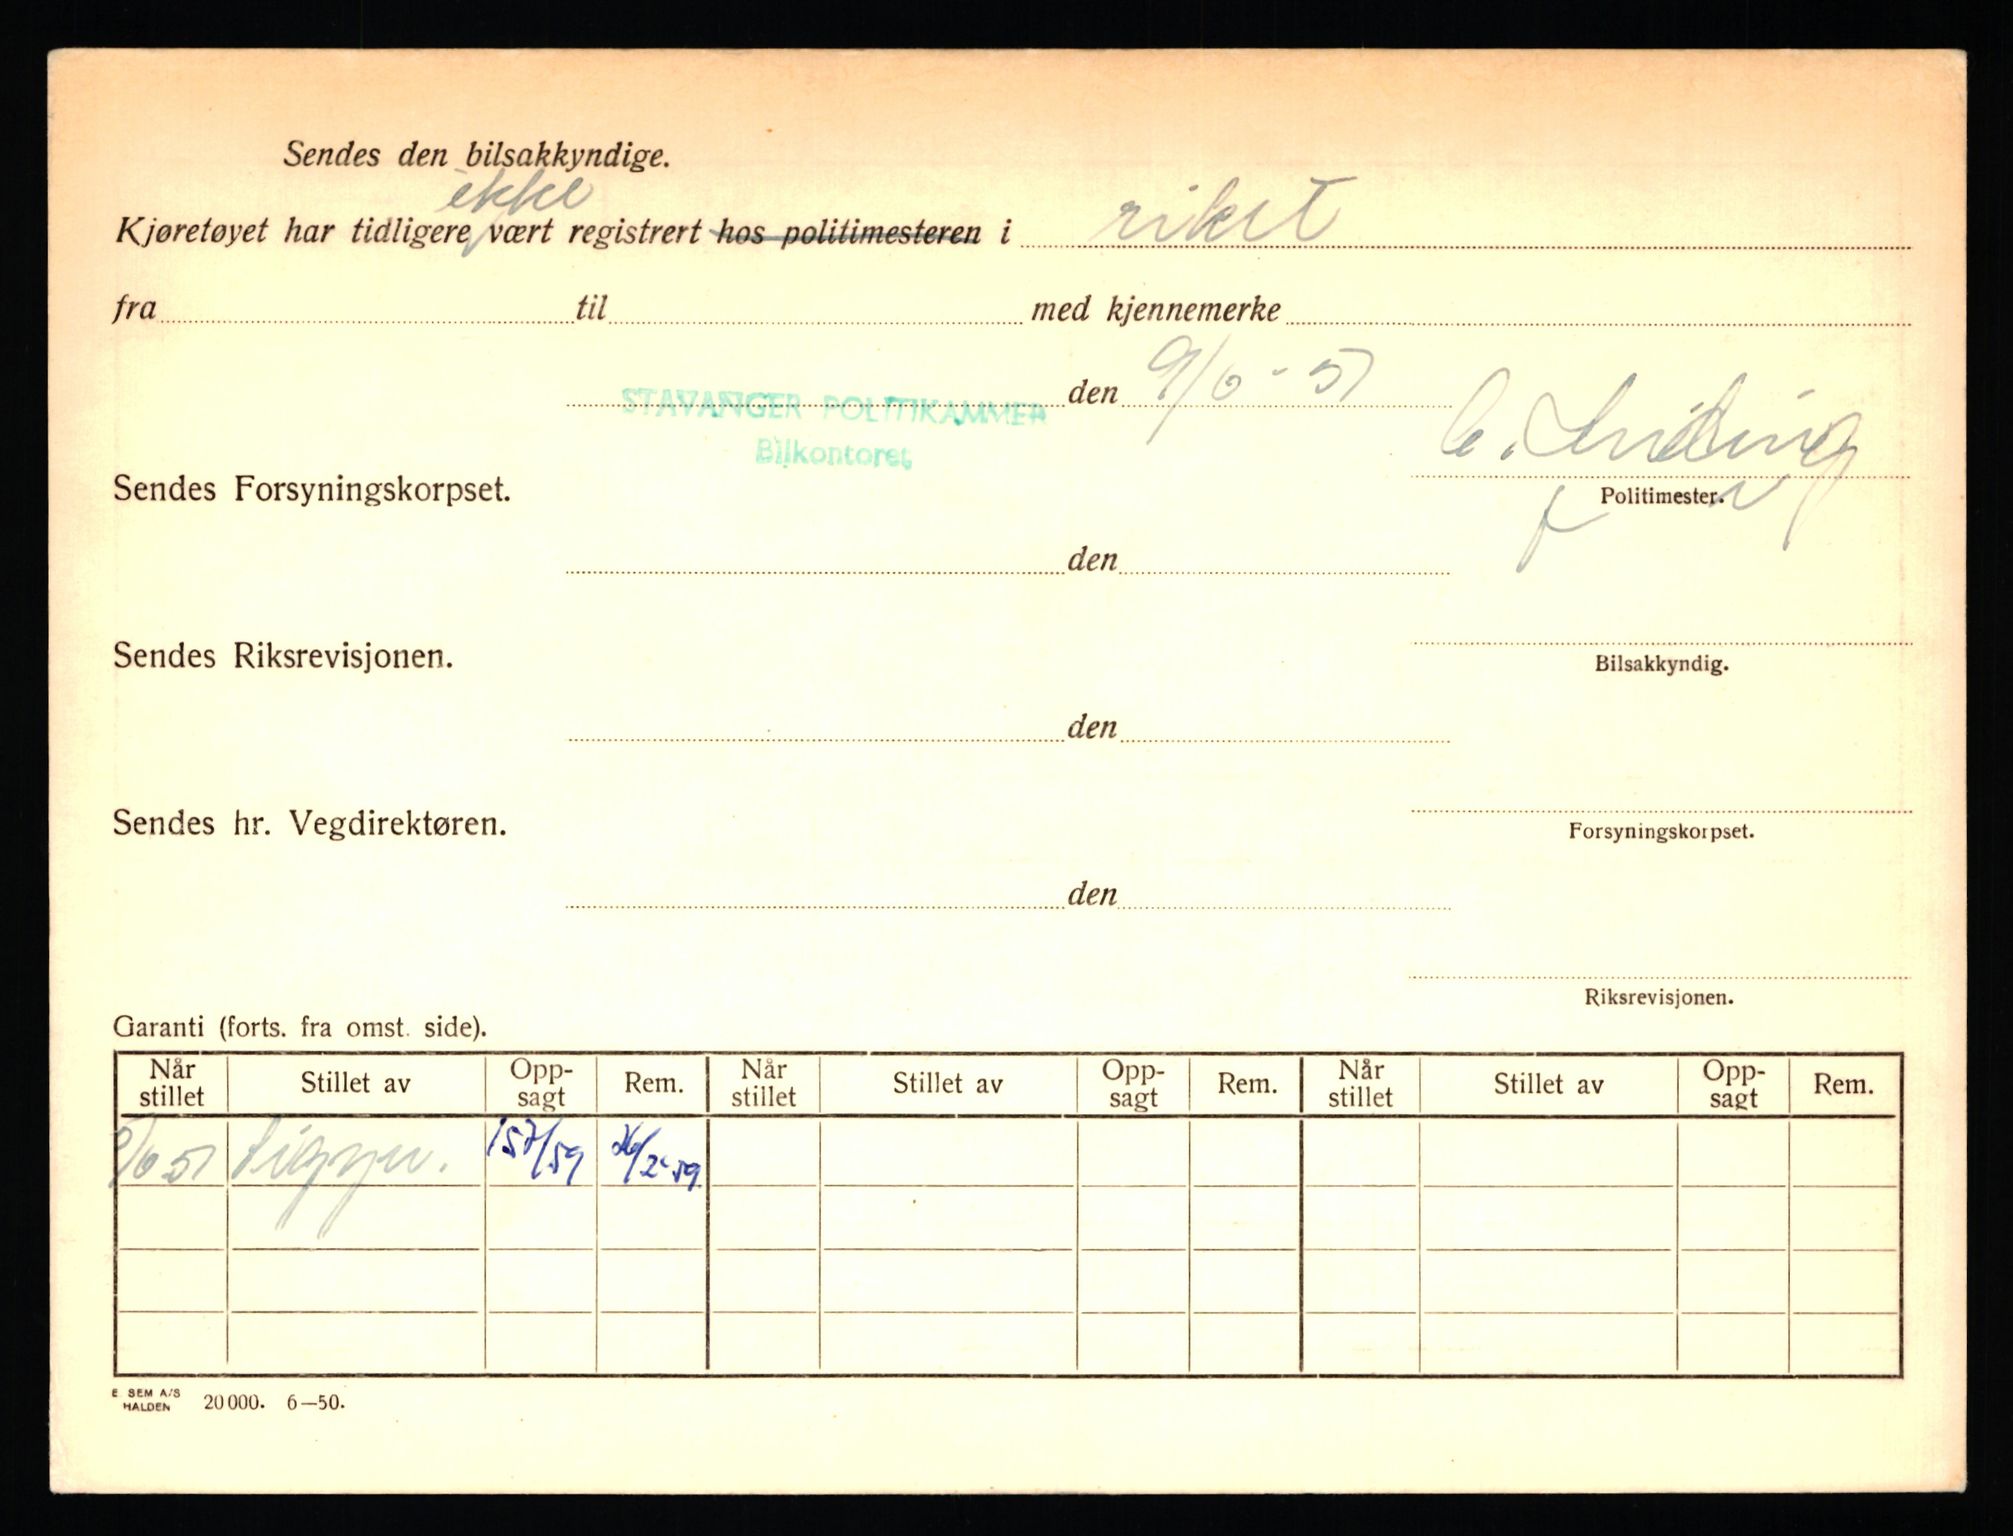 Sendes den bilsakkyndige.
ikke
Kjøretøyet har tidligere vært registrert hos politimesteren i riket
fra til med kjennemerke
STAVANGER POLITIKAMMER den 9/6 - 51
Bilkontoret
Sendes Forsyningskorpset.
Politimester.
den
Sendes Riksrevisjonen.
Bilsakkyndig.
den
Sendes hr. Vegdirektøren.
Forsyningskorpset.
den
Riksrevisjonen.
Garanti (forts. fra omst. side).
Når stillet Stillet av Opp-sagt Rem. Når stillet Stillet av Opp-sagt Rem. Når stillet Stillet av Opp-sagt Rem.
9/6 51 Sigyn. 157/59 26/2-59.
E. SEM A/S
HALDEN 20 000. 6—50.